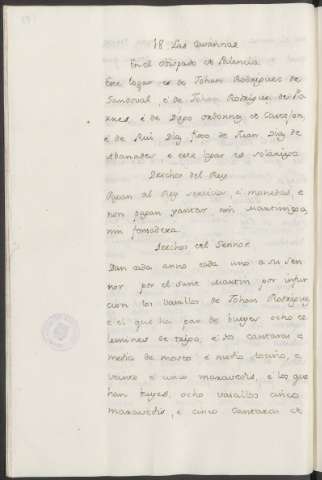 18 Las Quxannas
En el Obispado de Palencia
Este logar es de Johan Rodriguez de
Sandoval, e de Johan Rodriguez de
e de Diego Ordonnez de Carrion,
e de Rui Diaz fijo de Juan Diaz de
e este logar es solariego
Derechos del Rey
Pagan al Rey servicios, e monedas, e
non pagan yantar nin Martiniega,
nin fonsadera.
Derechos del Sennor
Dan cada anno cada uno a su Sen-
nor por el Sant Martin por infur-
cion los vasallos de Johan Rodriguez,
e el que ha par de bueyes ocho ce-
lemines de trigo, e dos cantaras e
media de mosto e medio tocino, e
veinte e cinco maravedis, e los que
han bueyes, ocho vasallos cinco
maravedis, e cinco cantaras de